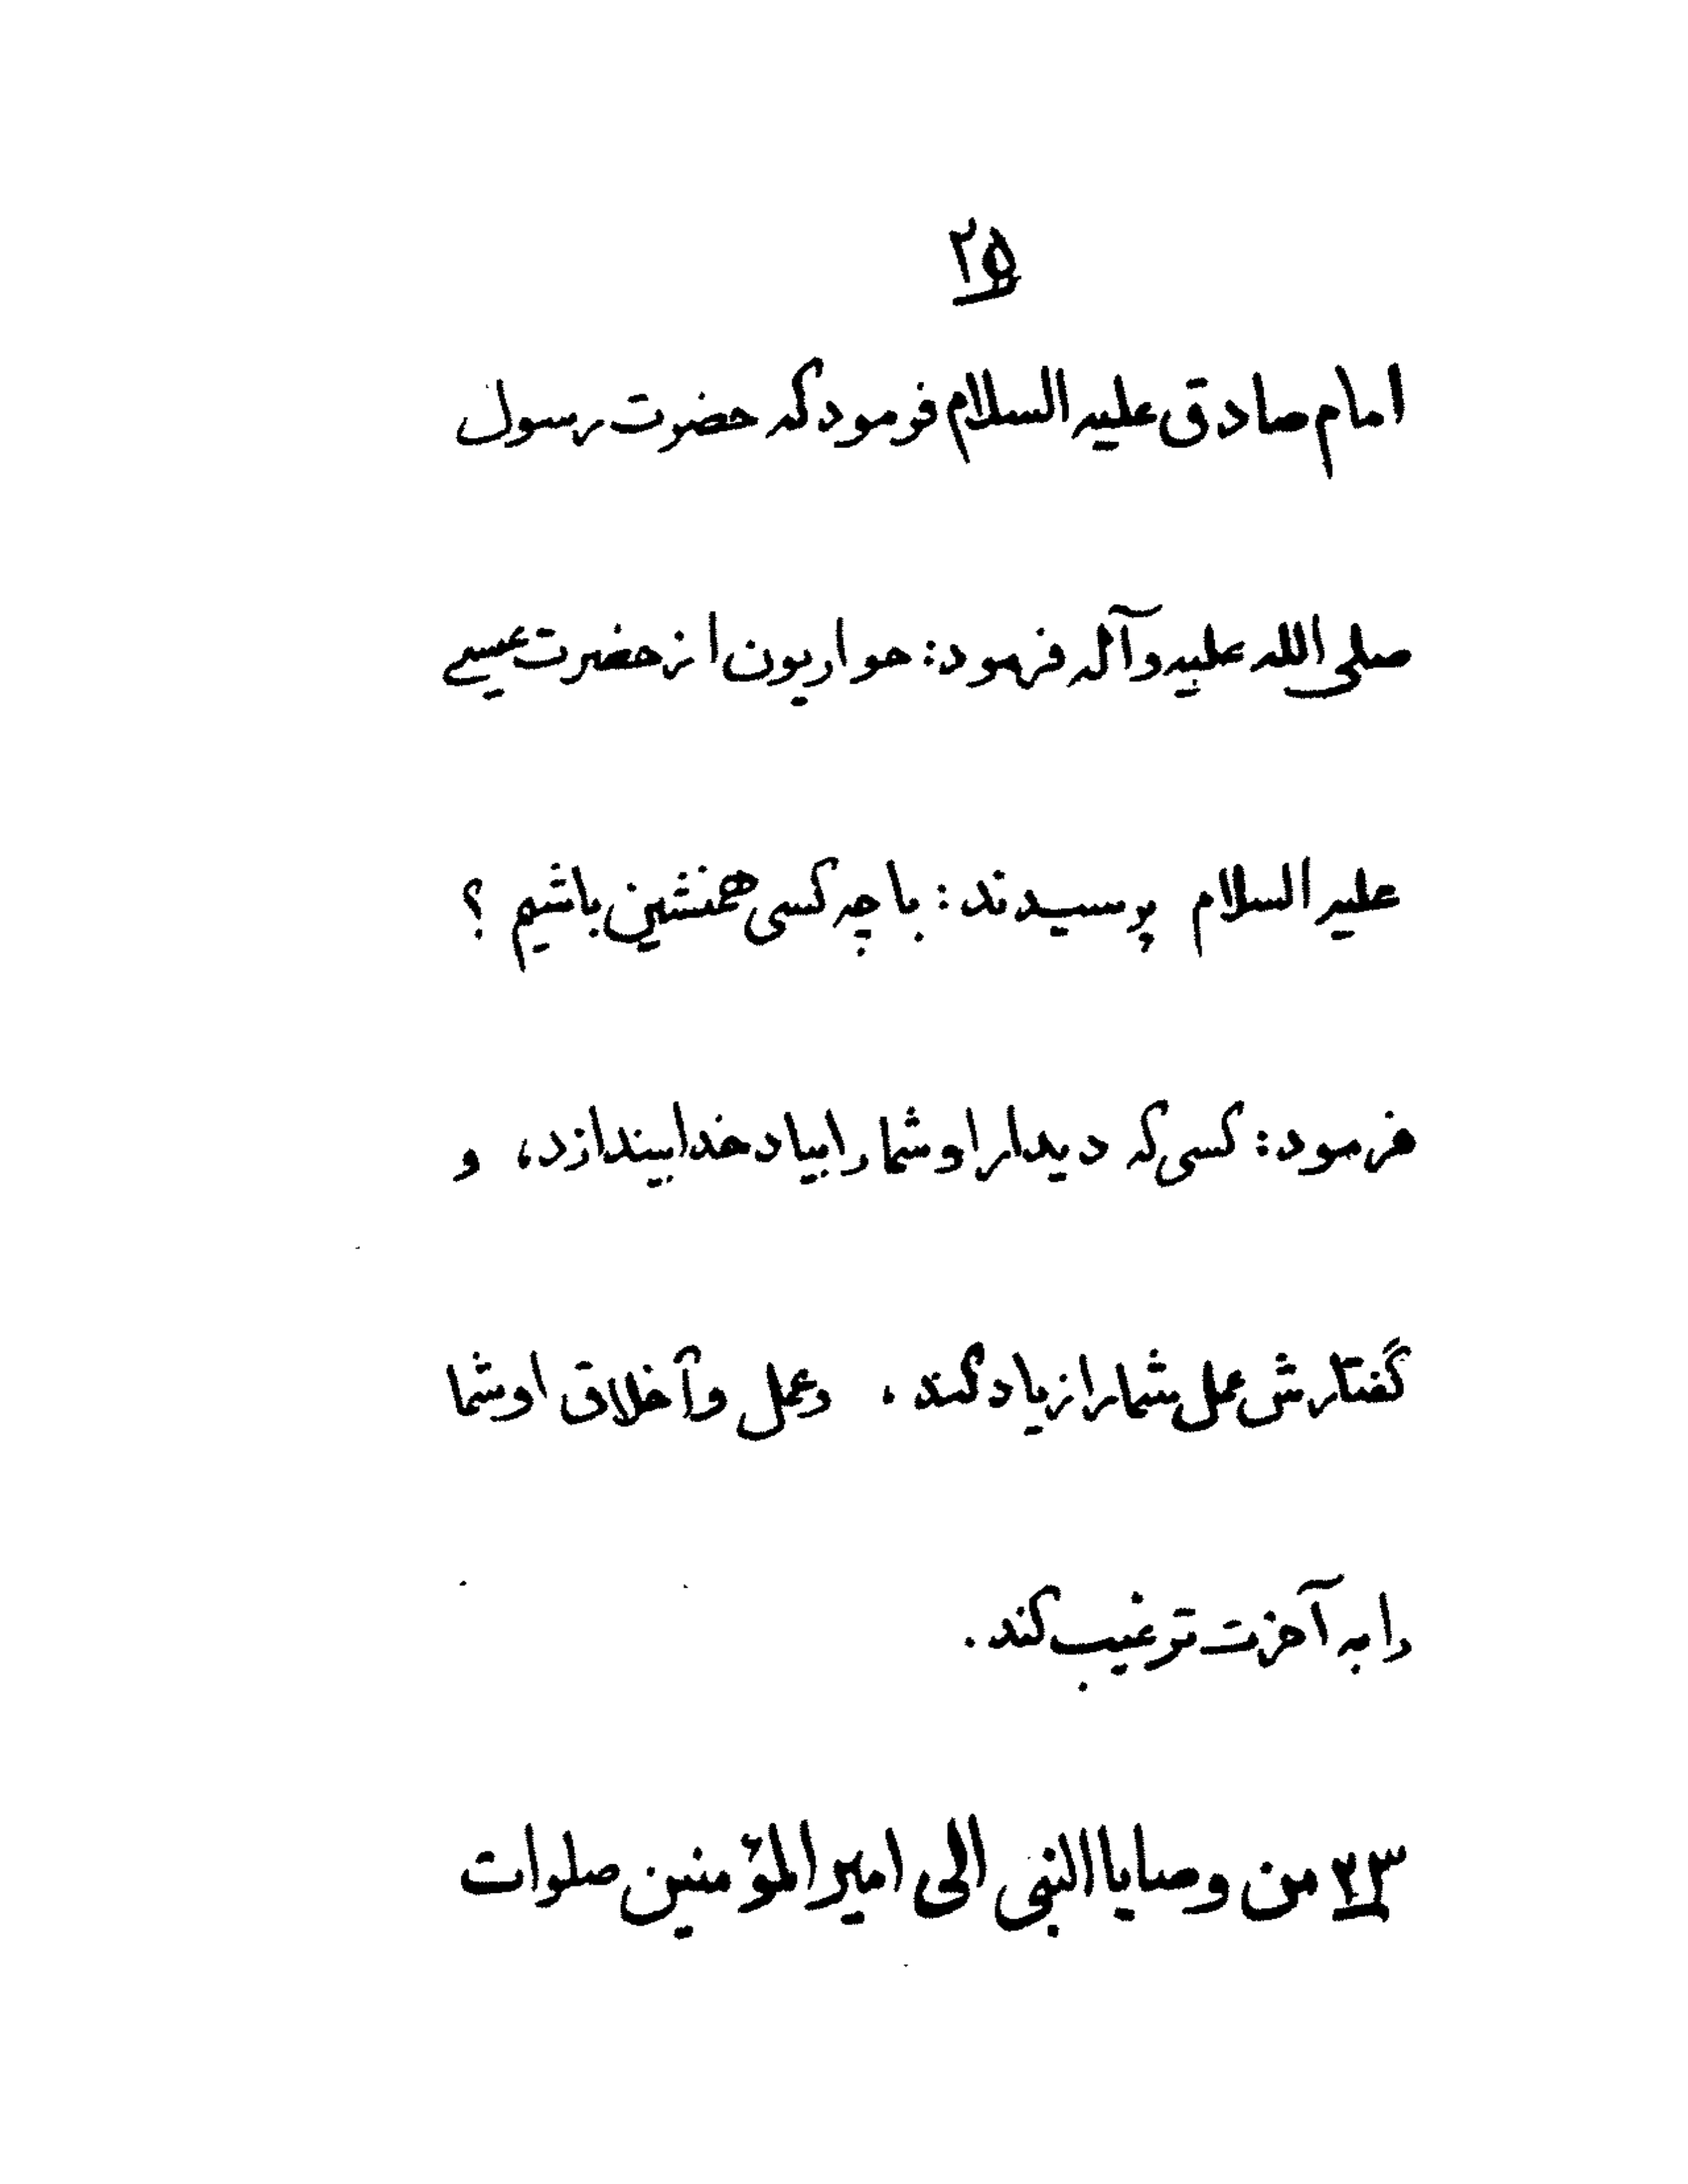 ۲۵
امام صادق علیه السلام فرمود که حضرت رسول
صلی الله علیه وآله فرمود: حواریون از حضرت عیسی
علیه السلام پرسیدند: با چه کسی همنشین باشیم ؟
فرمود: کسی که دیدار او شما را بیاد خدا بیندازد، و
گفتارش عمل شما را زیاد کند، وعمل وأخلاق او شما
را به آخرت ترغیب کند.
۲۳ من وصایا النبی الی امیر المؤمنین صلوات